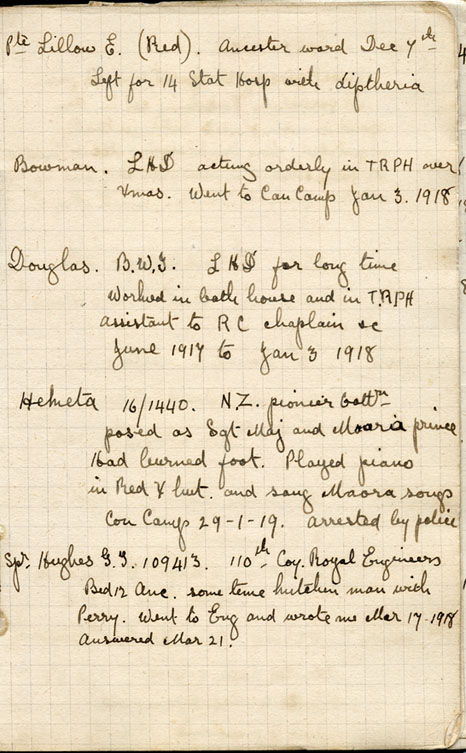 Pte Lillow E. (Red). Ancester ward Dec 7th
Left for 14 Stat Hosp with diptheria
Bowman. LHD acting orderly in TRPH over
Xmas. Went to Con Camp Jan 3. 1918
Douglas. B.W.I. LHD for long time
Worked in bath house and in TRPH
assistant to RC chaplain &c
June 1917 to Jan 3 1918
Heketa 16/1440. N.Z. pioneer battn
posed as Sgt Maj and Maaria prince
Had burned foot. Played piano
in Red X hut. and sang Maora songs
Con Camp 29-1-19. arrested by police
Spr. Hughes 109413. 110th Coy. Royal Engineers
Bed 12 Anc. some time kitchen man with
Perry. Went to Eng and wrote me Mar 17-1918
Answered Mar 21.